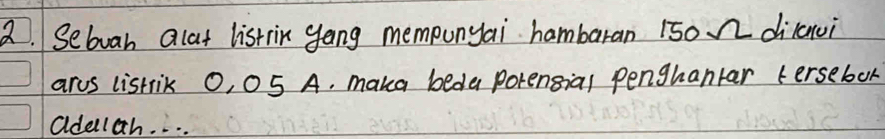 2. Sebuah alat listrik yang mempunyai hambatan 150 Ω dilalui
arus listrik 0,05 A. maka beda potensial penghantar tersebut
adalah....